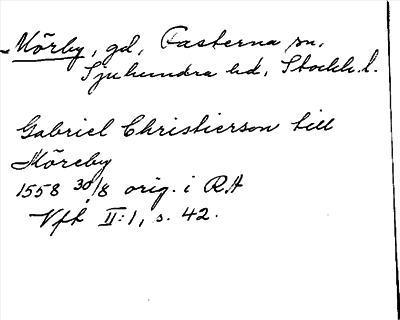 Mörby, gd, Fasterna sn.
Sjuhundra hd, Stockh. l.
Gabriel Christierson till
Möreby
1558 30/8 orig. i RA
Vfh II:1, s. 42.